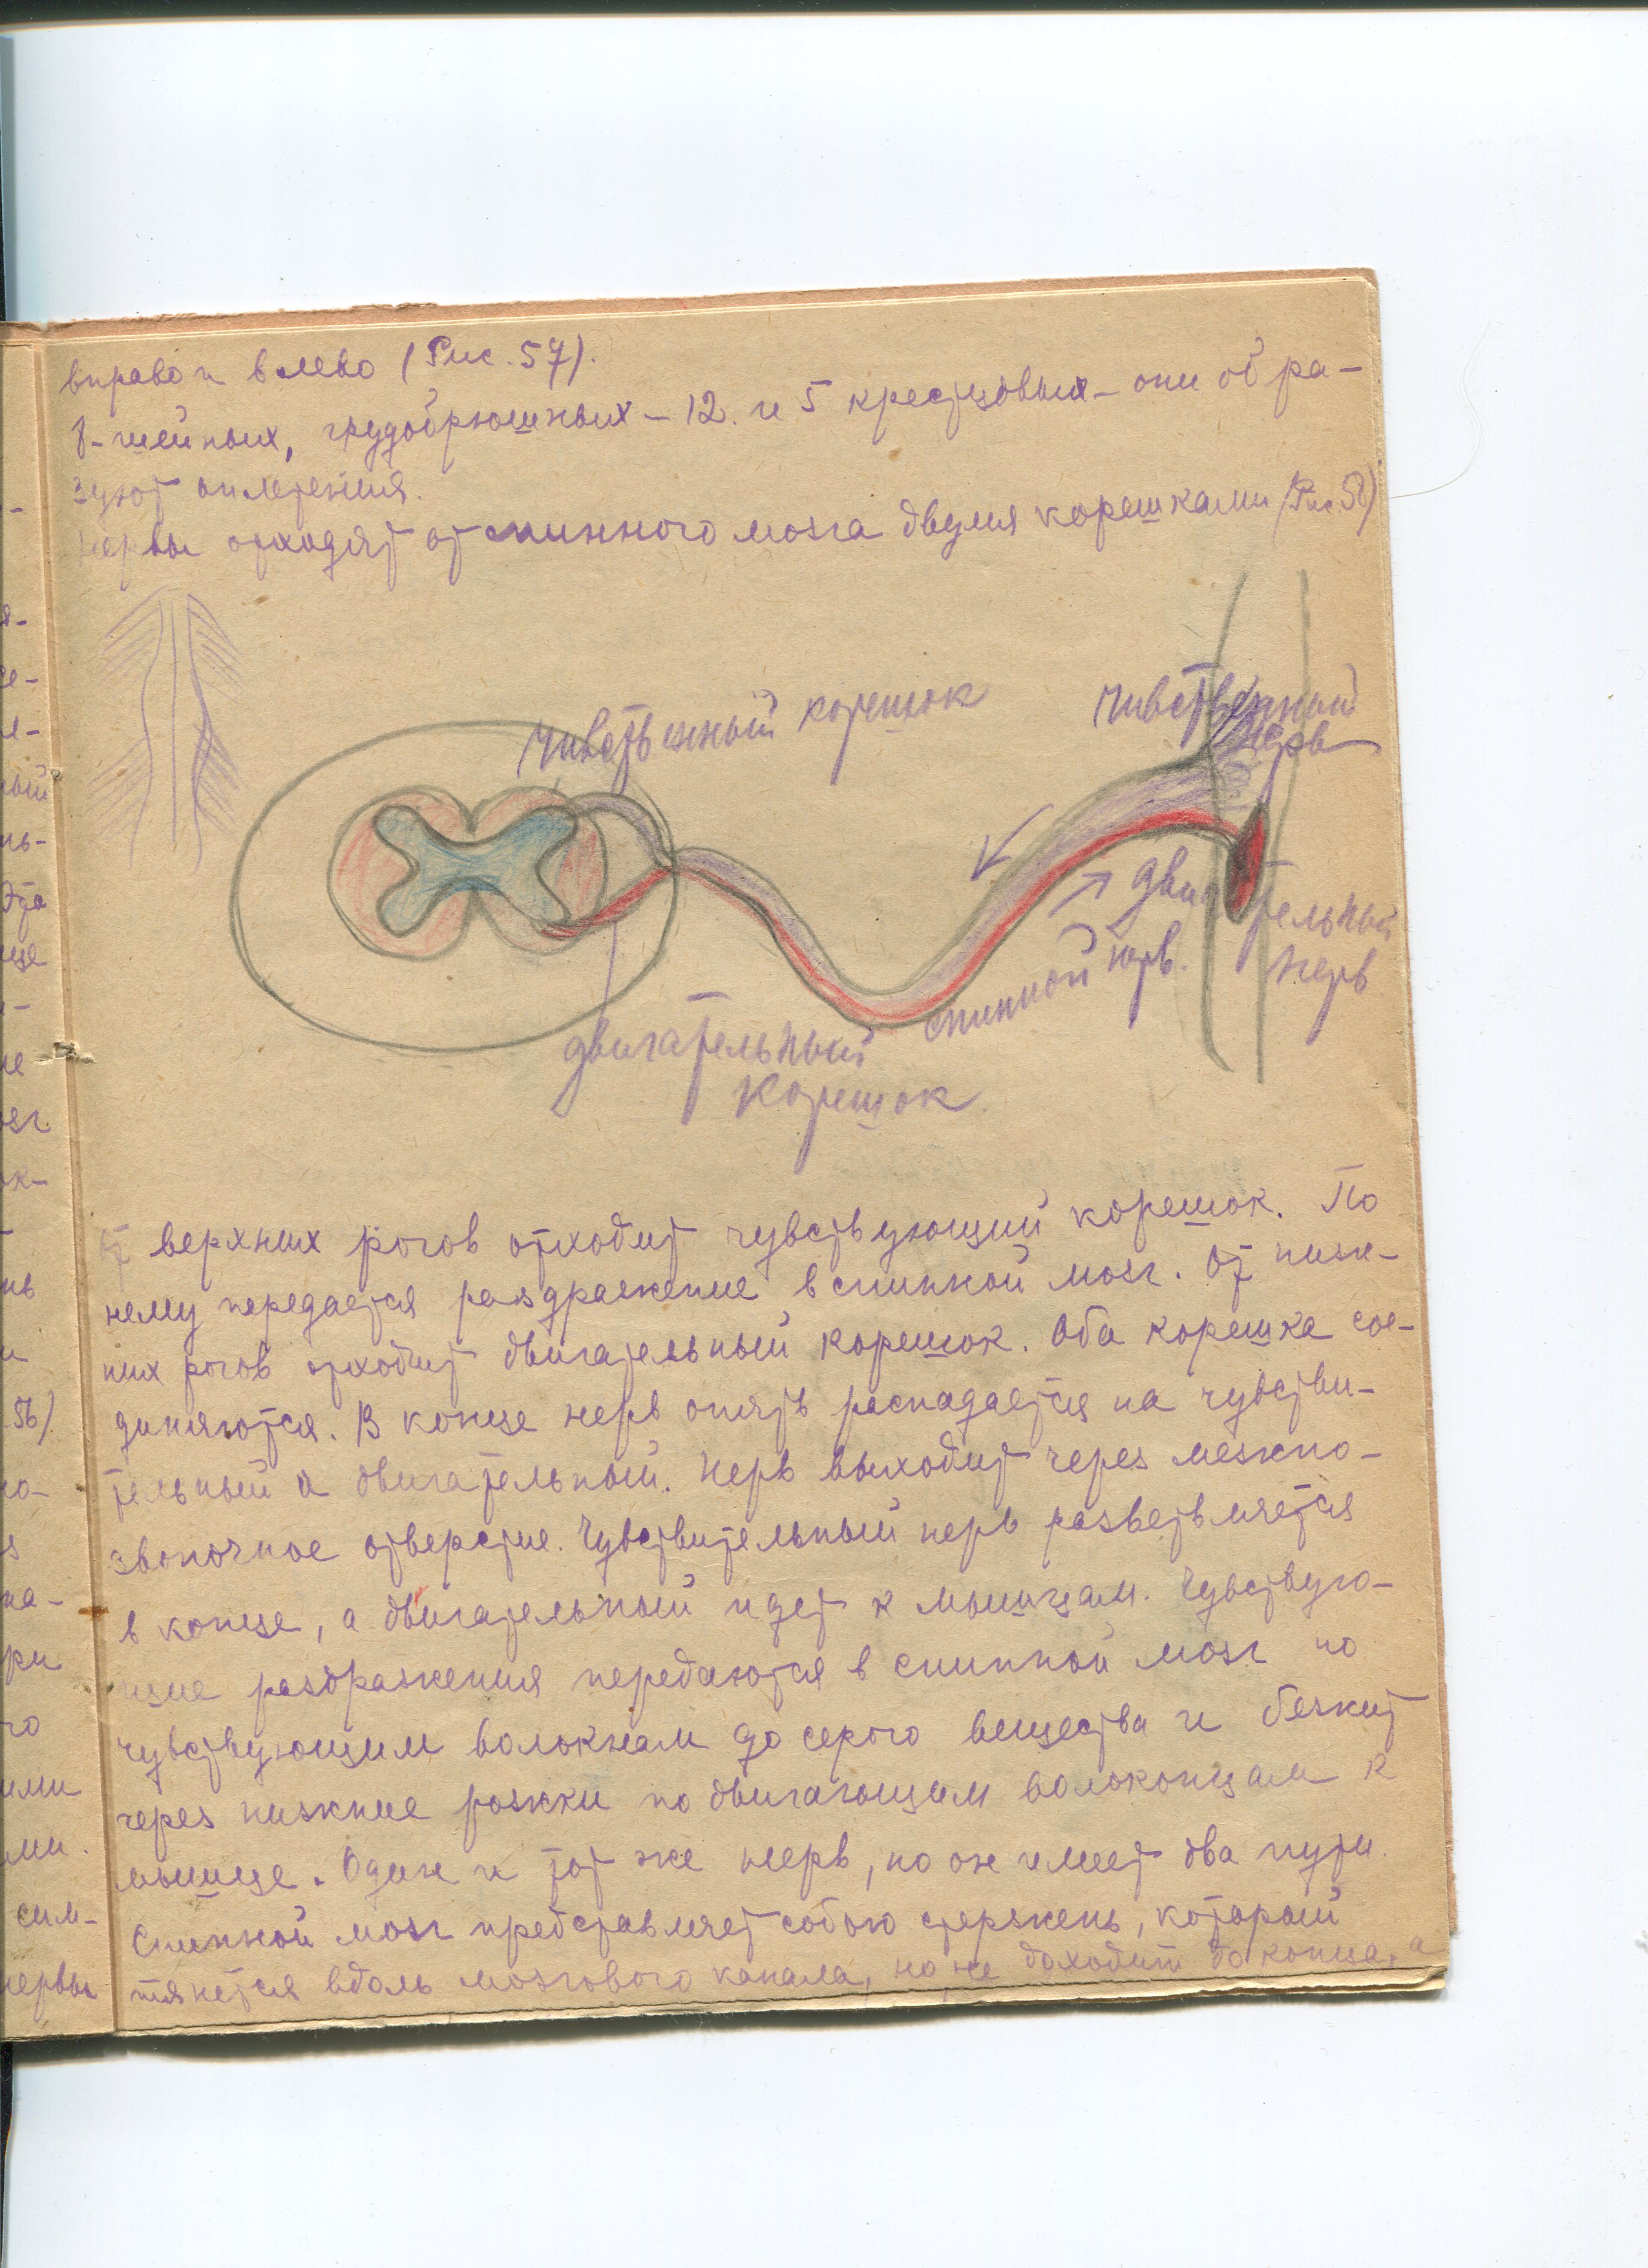 вправо и влево (Рис. 57).
8-шейных, грудобрюшных – 12. и 5 крестцовых – они обра-
зуют сплетения.
Нервы отходят от спинного мозга двумя корешками (Рис 58)
чивственный корешок
чивственный
нерв
двигательный
нерв
спинной нерв.
двигательный
корешок
От верхних рогов отходит чувствующий корешок. По
нему передается раздражение в спинной мозг. От ниж-
них рогов отходит двигательный корешок. Оба корешка сое-
диняются. В конце нерв опять распадается на чувстви-
тельный и двигательный. Нерв выходит через межпо-
звоночное отверстие. Чувствительный нерв разветвляется
в конце, а двигательный идет к мышцам. Чувствую-
щие раздражения передаются в спинной мозг по
чувствующим волокнам до серого вещества и бежит
через нижние рожки по двигающим волоконцам к
мышце. Один и тот же нерв, но он имеет два пути.
Спинной мозг представляет собою стержень, который
тянется вдоль мозгового канала, но не доходит до конца, а